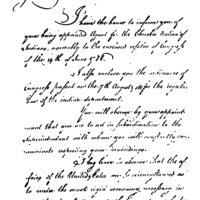 I have the honor to inform you of
your being appointed Agent for the Cherokee Nation of
Indians, agreeably to the enclosed resolve of Congress
of the 19th of June
I also enclose you the ordinance of
Congress passed on the 7th August, 1786 for the regula-
tion of the indian department.
You will observe by your appoint-
ment that you are to act in subordination to the
Superintendent with whom you will constantly com-
municate respecting your proceedings.
I beg leave to observe that the af-
fairs of the United States are so circumstanced as
to render the most rigid economy necessary in